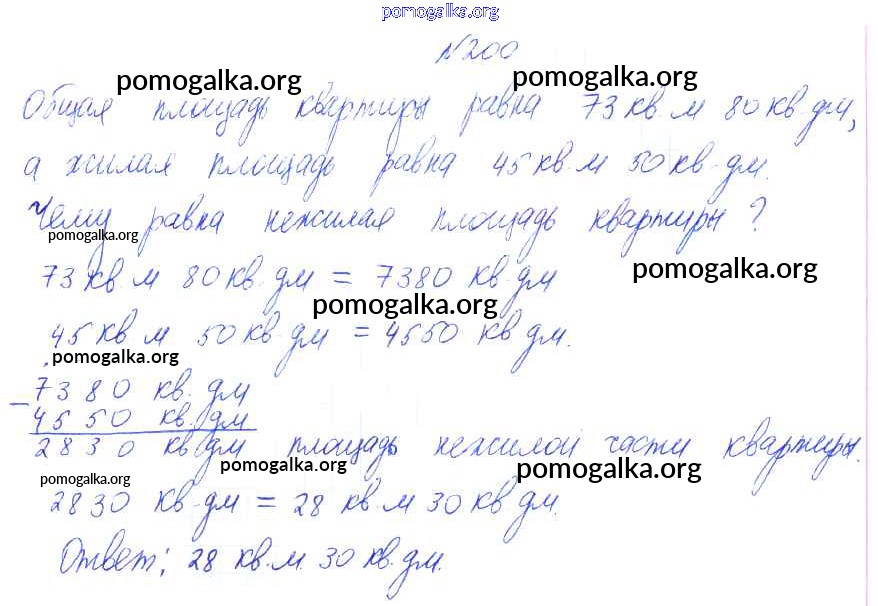 pomogalka.org
№200
pomogalka.org pomogalka.org
Общая площадь квартиры равна 73 кв.м 80 кв.дм,
а жилая площадь равна 45 кв.м 50 кв.дм.
Чему равна нежилая площадь квартиры?
pomogalka.org
73 кв.м 80 кв.дм = 7380 кв.дм
pomogalka.org
pomogalka.org
45 кв м 50 кв.дм = 4550 кв дм.
pomogalka.org
– 7380 кв. дм
4550 кв. дм
2830 кв дм площадь нежилой части квартиры.
pomogalka.org pomogalka.org
pomogalka.org
2830 кв.дм = 28 кв.м 30 кв.дм.
Ответ; 28 кв.м. 30 кв.дм.